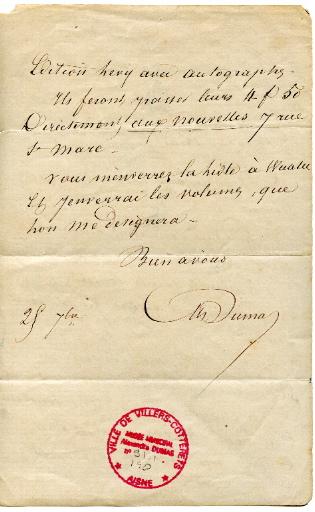 Edition Levy avec autographe -
Ils feront passer leurs 4 f 50
Directement aux nouvelles 7 rue
St Marc -
Vous m'enverrez la liste à
Et J'enverrai les volumes, que
l'on me désignera -
Bien à vous
25 7bre
Al Dumas
VILLE DE VILLERS-COTTERETS
MUSÉE MUNICIPAL
Alexandre DUMAS
n°
AISNE